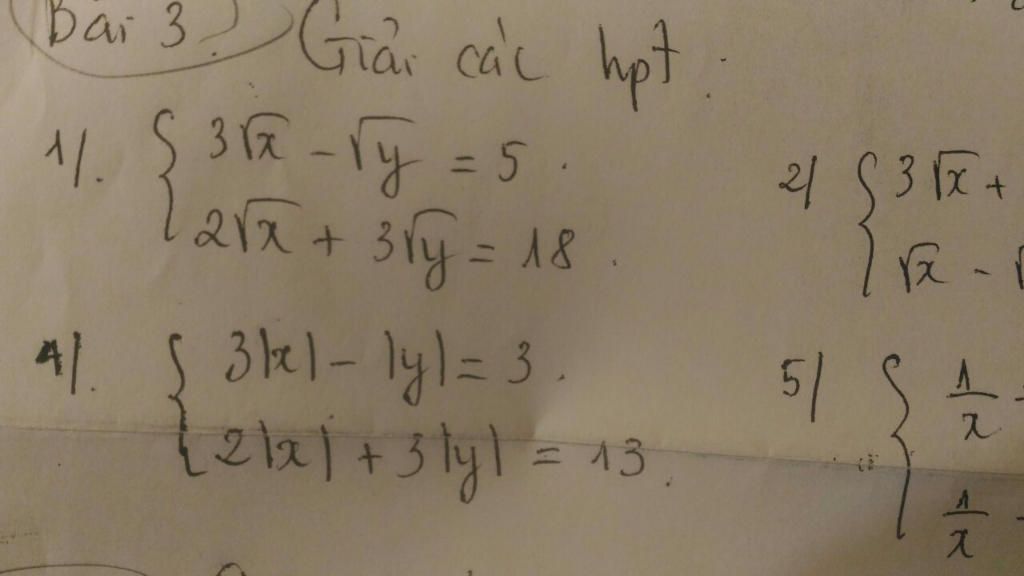 Bài 3. Giải các hpt.
1/. { 3√x - √y = 5.
2√x + 3√y = 18.
2/ { 3√x +
√x - √
4/. { 3|x| - |y| = 3.
2|x| + 3|y| = 13.
5/ { 1/x -
1/x -